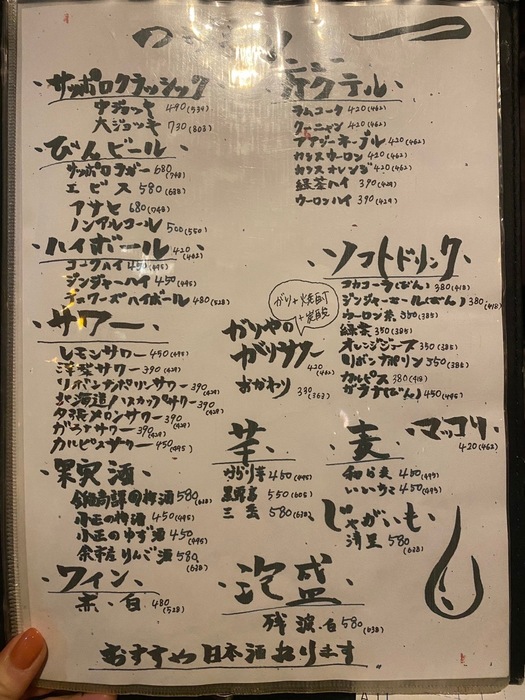 サッポロクラシック
中ジョッキ 490(539)
大ジョッキ 730(803)
びんビール
サッポロラガー 680(748)
エビス 580(638)
アサヒ 680(748)
ノンアルコール 500(550)
ハイボール 420(462)
コークハイ 450(495)
ジンジャーハイ 450(495)
ハイボール 480(528)
サワー
レモンサワー 450(495)
サワー 390(429)
リボンナポリンサワー 390(429)
北海道ハスカップサワー 390(429)
夕張メロンサワー 390(429)
ガラナサワー 390(429)
カルピスサワー 450(495)
果実酒
梅酒 580(638)
小正の梅酒 450(495)
小正のゆず酒 450(495)
余市産りんご酒 580(638)
ワイン
赤・白 480(528)
カクテル
ラムコーク 420(462)
クーニャン 420(462)
ファジーネーブル 420(462)
カシスウーロン 420(462)
カシスオレンジ 420(462)
緑茶ハイ 390(429)
ウーロンハイ 390(429)
ソフトドリンク
コカコーラ(びん) 380(418)
ジンジャーエール(びん) 380(418)
ウーロン茶 350(385)
緑茶 350(385)
オレンジジュース 350(385)
リボンナポリン 350(385)
カルピス 380(418)
ガラナ(びん) 450(495)
がり+焼酎
+炭酸
がりやの
がりサワー 420(462)
おかわり 330(363)
芋
450(495)
黒霧島 550(605)
三岳 580(638)
麦
和ら麦 450(495)
いいちこ 450(495)
マッコリ
420(462)
じゃがいも
清里 580(638)
泡盛
残波・白 580(638)
おすすめ日本酒おります